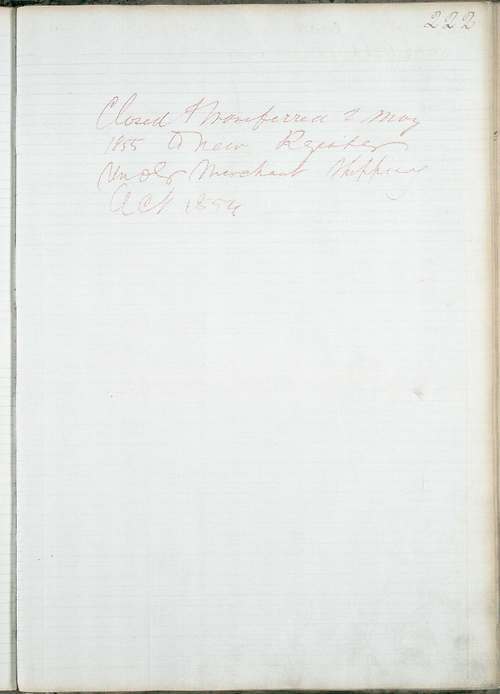 222
Closed & Transferred 2 May
1855 to new Register
Under Merchant Shipping
Act 1854